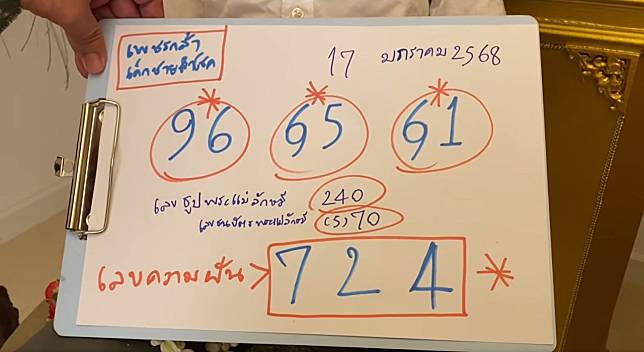 เพชรกล้า
เด็กชายมีโชค
17 มกราคม 2568
96 65 61
เลขธูปพระแม่ลักษมี 240
เลขธนบัตรพระแม่ลักษมี (5) 70
เลขความฝัน > 724